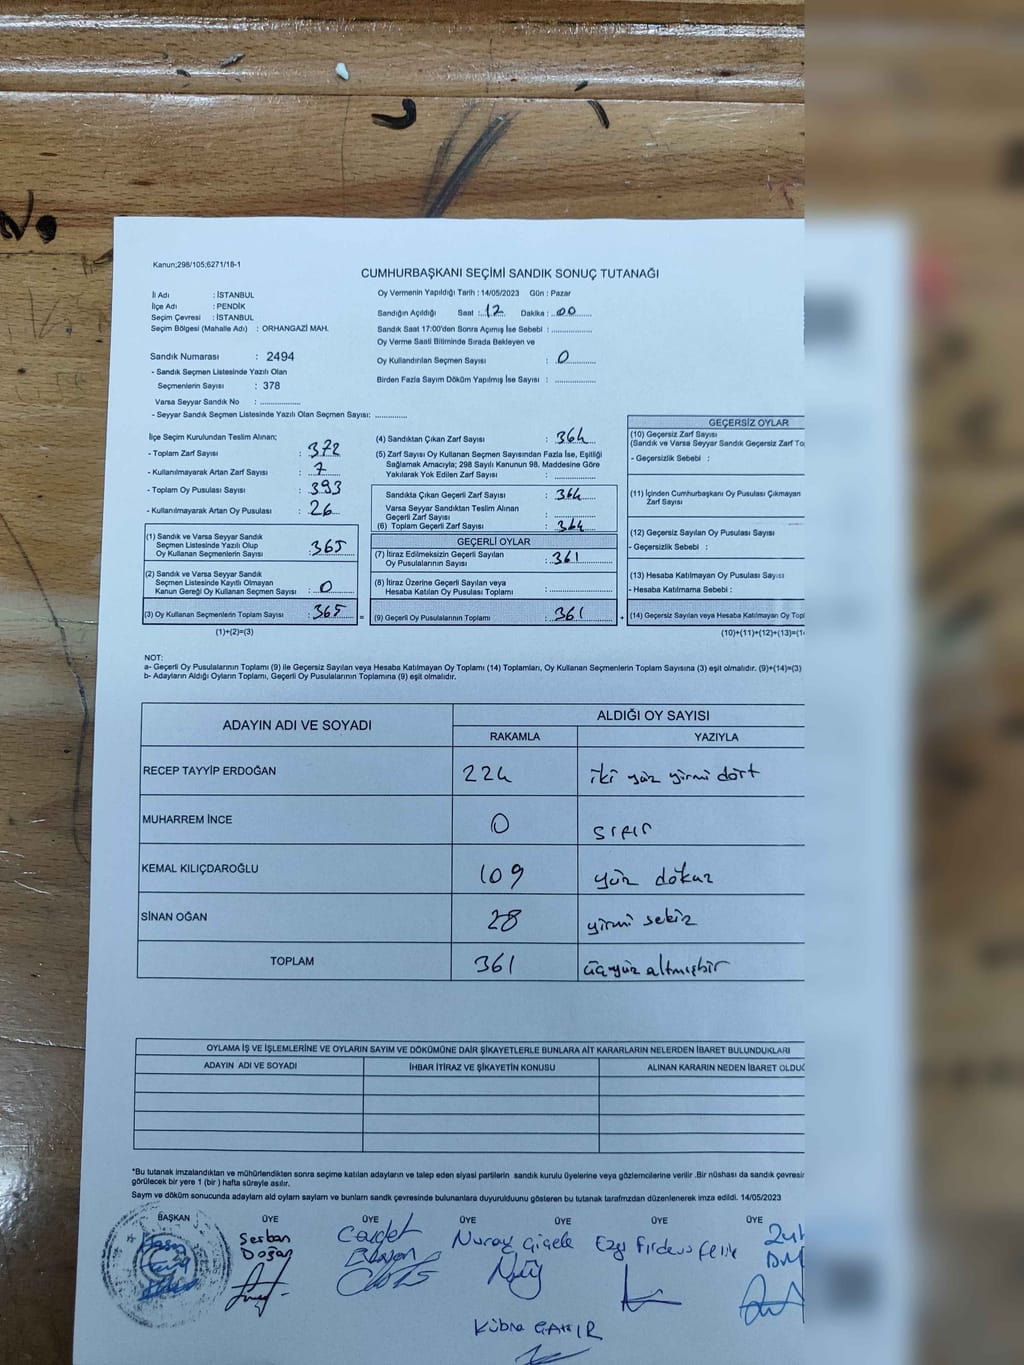 Kanun;298/105;6271/18-1
CUMHURBAŞKANI SEÇİMİ SANDIK SONUÇ TUTANAĞI
İl Adı : İSTANBUL
İlçe Adı : PENDİK
Seçim Çevresi : İSTANBUL
Seçim Bölgesi (Mahalle Adı) : ORHANGAZİ MAH.
Sandık Numarası : 2494
- Sandık Seçmen Listesinde Yazılı Olan
Seçmenlerin Sayısı : 378
Varsa Seyyar Sandık No : ..............
- Seyyar Sandık Seçmen Listesinde Yazılı Olan Seçmen Sayısı: ............
Oy Vermenin Yapıldığı Tarih : 14/05/2023 Gün : Pazar
Sandığın Açıldığı Saat : 12 Dakika : 00
Sandık Saat 17:00'den Sonra Açımış İse Sebebi : ..............
Oy Verme Saati Bitiminde Sırada Bekleyen ve
Oy Kullandırılan Seçmen Sayısı : 0
Birden Fazla Sayım Döküm Yapılmış İse Sayısı : ..............
İlçe Seçim Kurulundan Teslim Alınan;
- Toplam Zarf Sayısı : 372
- Kullanılmayarak Artan Zarf Sayısı : 7
- Toplam Oy Pusulası Sayısı : 393
- Kullanılmayarak Artan Oy Pusulası : 26
(1) Sandık ve Varsa Seyyar Sandık
Seçmen Listesinde Yazılı Olup
Oy Kullanan Seçmenlerin Sayısı : 365
(2) Sandık ve Varsa Seyyar Sandık
Seçmen Listesinde Kayıtlı Olmayan
Kanun Gereği Oy Kullanan Seçmen Sayısı : 0
(3) Oy Kullanan Seçmenlerin Toplam Sayısı : 365 =
(1)+(2)=(3)
(4) Sandıktan Çıkan Zarf Sayısı : 364
(5) Zarf Sayısı Oy Kullanan Seçmen Sayısından Fazla İse, Eşitliği
Sağlamak Amacıyla; 298 Sayılı Kanunun 98. Maddesine Göre
Yakılarak Yok Edilen Zarf Sayısı : ..............
Sandıkta Çıkan Geçerli Zarf Sayısı : 364
Varsa Seyyar Sandıktan Teslim Alınan
Geçerli Zarf Sayısı : ..............
(6) Toplam Geçerli Zarf Sayısı : 364
GEÇERLİ OYLAR
(7) İtiraz Edilmeksizin Geçerli Sayılan
Oy Pusulalarının Sayısı : 361
(8) İtiraz Üzerine Geçerli Sayılan veya
Hesaba Katılan Oy Pusulası Toplamı : ..............
(9) Geçerli Oy Pusulalarının Toplamı : 361 +
GEÇERSİZ OYLAR
(10) Geçersiz Zarf Sayısı
(Sandık ve Varsa Seyyar Sandık Geçersiz Zarf To
- Geçersizlik Sebebi :
(11) İçinden Cumhurbaşkanı Oy Pusulası Çıkmayan
Zarf Sayısı
(12) Geçersiz Sayılan Oy Pusulası Sayısı
- Geçersizlik Sebebi :
(13) Hesaba Katılmayan Oy Pusulası Sayısı
- Hesaba Katılmama Sebebi :
(14) Geçersiz Sayılan veya Hesaba Katılmayan Oy Topl
(10)+(11)+(12)+(13)=(1
NOT:
a- Geçerli Oy Pusulalarının Toplamı (9) ile Geçersiz Sayılan veya Hesaba Katılmayan Oy Toplamı (14) Toplamları, Oy Kullanan Seçmenlerin Toplam Sayısına (3) eşit olmalıdır. (9)+(14)=(3)
b- Adayların Aldığı Oyların Toplamı, Geçerli Oy Pusulalarının Toplamına (9) eşit olmalıdır.
ADAYIN ADI VE SOYADI ALDIĞI OY SAYISI
RAKAMLA YAZIYLA
RECEP TAYYİP ERDOĞAN 224 iki yüz yirmi dört
MUHARREM İNCE 0 sıfır
KEMAL KILIÇDAROĞLU 109 yüz dokuz
SİNAN OĞAN 28 yirmi sekiz
TOPLAM 361 üçyüz altmışbir
OYLAMA İŞ VE İŞLEMLERİNE VE OYLARIN SAYIM VE DÖKÜMÜNE DAİR ŞİKAYETLERLE BUNLARA AİT KARARLARIN NELERDEN İBARET BULUNDUKLARI
ADAYIN ADI VE SOYADI İHBAR İTİRAZ VE ŞİKAYETİN KONUSU ALINAN KARARIN NEDEN İBARET OLDUĞ
*Bu tutanak imzalandıktan ve mühürlendikten sonra seçime katılan adayların ve talep eden siyasi partilerin sandık kurulu üyelerine veya gözlemcilerine verilir .Bir nüshası da sandık çevresin
görülecek bir yere 1 (bir ) hafta süreyle asılır.
Sayım ve döküm sonucunda adayların ald oyların sayların ve bunların sandk çevresinde bulunanlara duyurulduunu gösteren bu tutanak tarafmzdan düzenlenerek imza edildi. 14/05/2023
BAŞKAN ÜYE ÜYE ÜYE ÜYE ÜYE ÜYE
Serban Doğan
Nuray Çiçek
Ezgi Firdevs Çelik
Kübra ÇAKIR